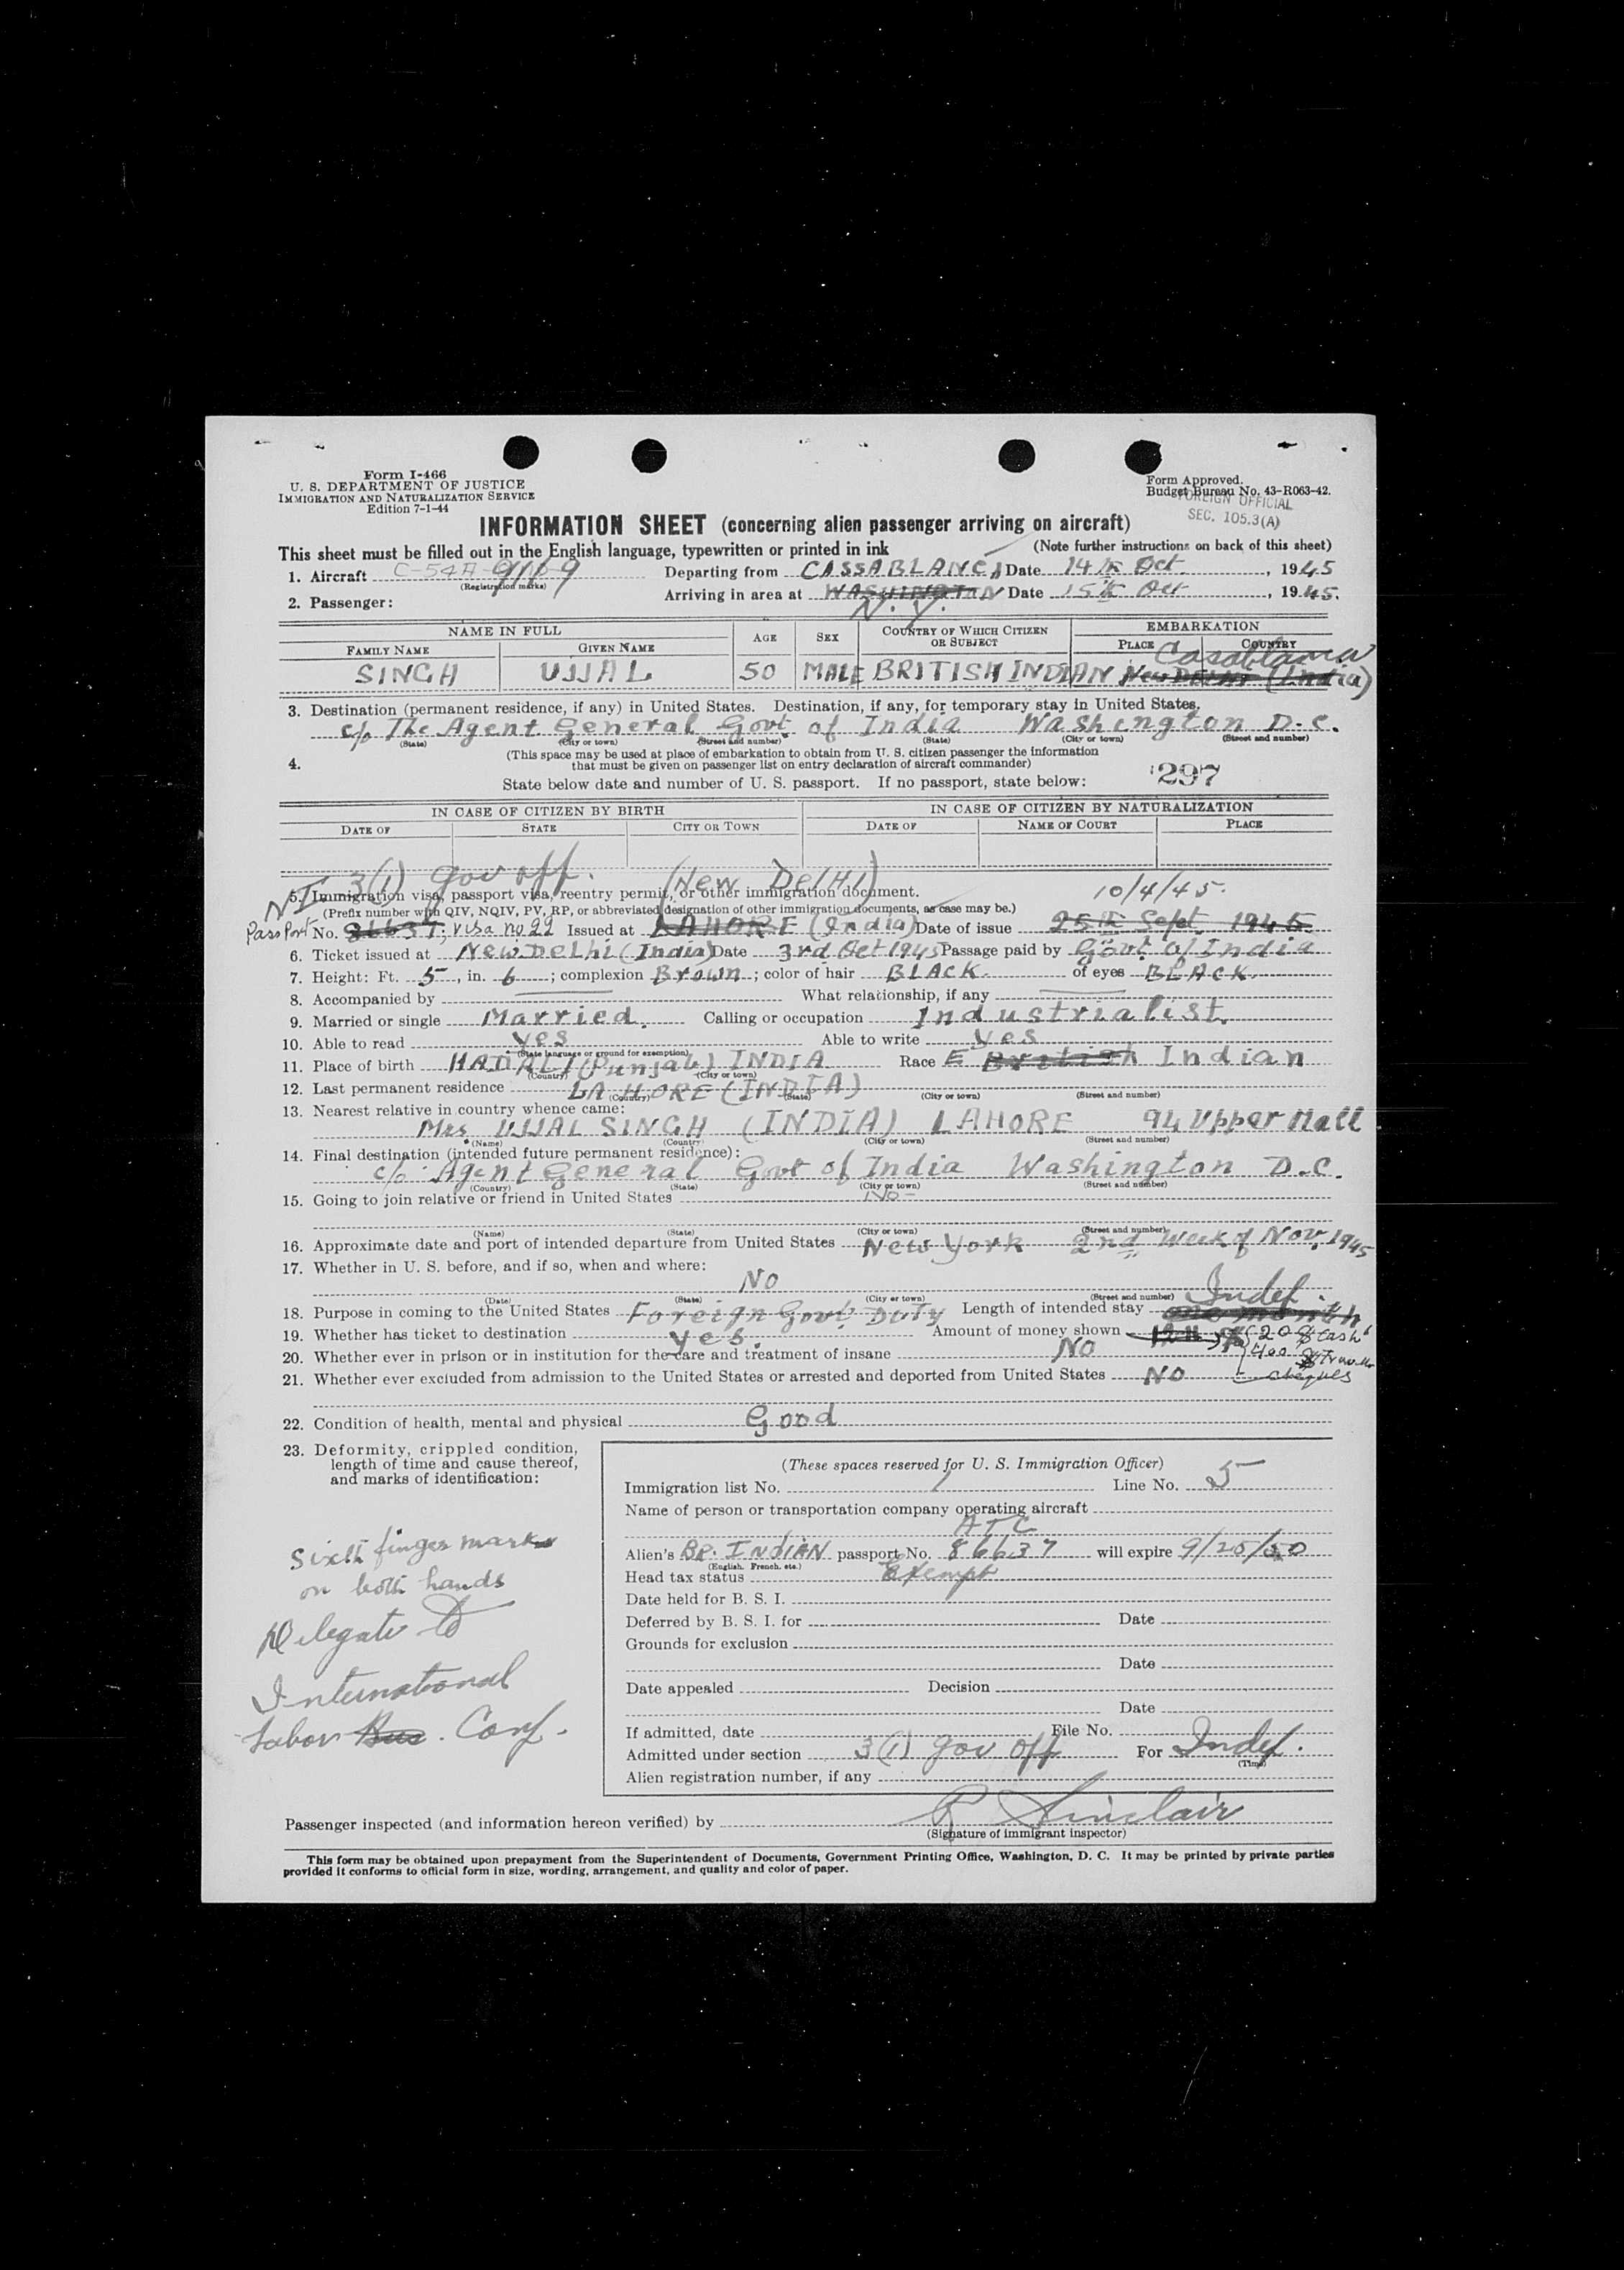 Form I-466
U. S. DEPARTMENT OF JUSTICE
IMMIGRATION AND NATURALIZATION SERVICE
Edition 7-1-44
Form Approved.
Budget Bureau No. 43-R063-42.
FOREIGN OFFICIAL
SEC. 105.3(A)
INFORMATION SHEET (concerning alien passenger arriving on aircraft)
This sheet must be filled out in the English language, typewritten or printed in ink (Note further instructions on back of this sheet)
1. Aircraft C-54A-9169 Departing from CASSABLANCA Date 14th Oct, 1945
(Registration marks)
2. Passenger: Arriving in area at WASHINGTON Date 15th Oct, 1945.
N. Y.
NAME IN FULL AGE SEX COUNTRY OF WHICH CITIZEN OR SUBJECT EMBARKATION
FAMILY NAME GIVEN NAME PLACE COUNTRY
Casablanca
SINGH UJJAL 50 MALE BRITISH INDIAN New Delhi (India)
3. Destination (permanent residence, if any) in United States. Destination, if any, for temporary stay in United States.
c/o The Agent General Govt. of India Washington D.C.
(State) (City or town) (Street and number) (State) (City or town) (Street and number)
4. (This space may be used at place of embarkation to obtain from U. S. citizen passenger the information
that must be given on passenger list on entry declaration of aircraft commander)
State below date and number of U. S. passport. If no passport, state below: 297
IN CASE OF CITIZEN BY BIRTH IN CASE OF CITIZEN BY NATURALIZATION
DATE OF STATE CITY OR TOWN DATE OF NAME OF COURT PLACE
NI 3(1) gov off. (New Delhi) 10/4/45.
5. Immigration visa, passport visa, reentry permit, or other immigration document.
(Prefix number with QIV, NQIV, PV, RP, or abbreviated designation of other immigration documents, as case may be.)
Passport No. 86637; visa no 22 Issued at LAHORE (India) Date of issue 25th Sept. 1945
6. Ticket issued at New Delhi (India) Date 3rd Oct 1945 Passage paid by Govt of India
7. Height: Ft. 5, in. 6; complexion Brown; color of hair BLACK. of eyes BLACK.
8. Accompanied by What relationship, if any
9. Married or single Married. Calling or occupation Industrialist.
10. Able to read yes Able to write yes
(State language or ground for exemption)
11. Place of birth HADALI (Punjab) INDIA Race E British Indian
(Country) (City or town)
12. Last permanent residence LAHORE (INDIA)
(Country) (State) (City or town) (Street and number)
13. Nearest relative in country whence came:
Mrs. UJJAL SINGH (INDIA) LAHORE 94 Upper Mall
(Name) (Country) (City or town) (Street and number)
14. Final destination (intended future permanent residence):
c/o Agent General Govt of India Washington D.C.
(Country) (State) (City or town) (Street and number)
15. Going to join relative or friend in United States No-
(Name) (State) (City or town) (Street and number)
16. Approximate date and port of intended departure from United States New York 2nd Week of Nov. 1945
17. Whether in U. S. before, and if so, when and where:
NO
(Date) (State) (City or town) (Street and number)
Indef.
18. Purpose in coming to the United States Foreign Govt Duty Length of intended stay one month
19. Whether has ticket to destination yes. Amount of money shown 20 $ cash
20. Whether ever in prison or in institution for the care and treatment of insane NO 400 $ Traveller
21. Whether ever excluded from admission to the United States or arrested and deported from United States NO cheques
22. Condition of health, mental and physical Good
23. Deformity, crippled condition,
length of time and cause thereof,
and marks of identification:
Sixth finger marks
on both hands
Delegate to
International
Labor Conf.
(These spaces reserved for U. S. Immigration Officer)
Immigration list No. 1 Line No. 5
Name of person or transportation company operating aircraft
ATC
Alien's BR. INDIAN passport No. 86637 will expire 9/25/50
(English, French, etc.)
Head tax status Exempt
Date held for B. S. I.
Deferred by B. S. I. for Date
Grounds for exclusion
Date
Date appealed Decision
Date
If admitted, date File No.
Admitted under section 3(1) gov off For Indef.
(Time)
Alien registration number, if any
Passenger inspected (and information hereon verified) by R Sinclair
(Signature of immigrant inspector)
This form may be obtained upon prepayment from the Superintendent of Documents, Government Printing Office, Washington, D. C. It may be printed by private parties
provided it conforms to official form in size, wording, arrangement, and quality and color of paper.